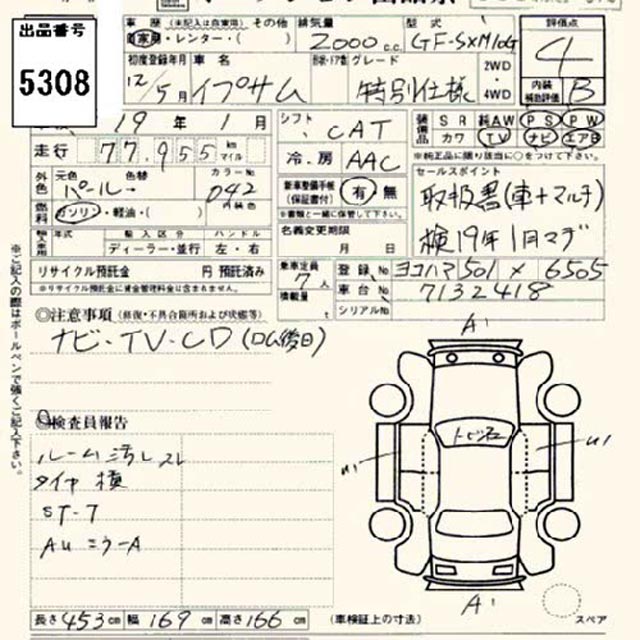 出品番号
5308
車歴 (未記入は自家用) その他 排気量 型式 評価点
自家用・レンタ・( ) 2000 c.c. GF-SXM10G 4
初度登録年月 車名 形状・ドア数 グレード 2WD 内装補助評価 B
12/5月 イプサム 特別仕様 4WD
車検 19 年 1 月 シフト CAT 装備品 SR 純AW PS PW
カワ TV ナビ エアB
走行 77,955 km マイル 冷房 AAC ※純正品に限り該当に○をつけて下さい。
外色 元色 色替 カラーNo. 新車整備手帳 (保証書付) 有 無 セールスポイント
パール→ 042 ※書類と一緒に保管して下さい。 取扱書(車+マルチ)
燃料 ガソリン・軽油・( ) 内装色 名義変更期限 検19年1月マデ
輸入車 年式 輸入区分 ハンドル 月 日
ディーラー・並行 左・右
リサイクル預託金 円 預託済み 乗車定員 7人 登録No ヨコハマ501 × 6505
※リサイクル預託金に資金管理料金は含まれません。 積載量 t 車台No 7132418
シリアルNo
◎注意事項 (修復・不具合箇所および状態等)
ナビ・TV・CD(ロム後日)
A'
◎検査員報告
ルーム汚レスレ
タイヤ積
ST-7
AUミラーA
トビ石
A'
長さ 453 cm 幅 169 cm 高さ 166 cm (車検証上の寸法) スペア
※ご記入の際はボールペンで強くご記入下さい。